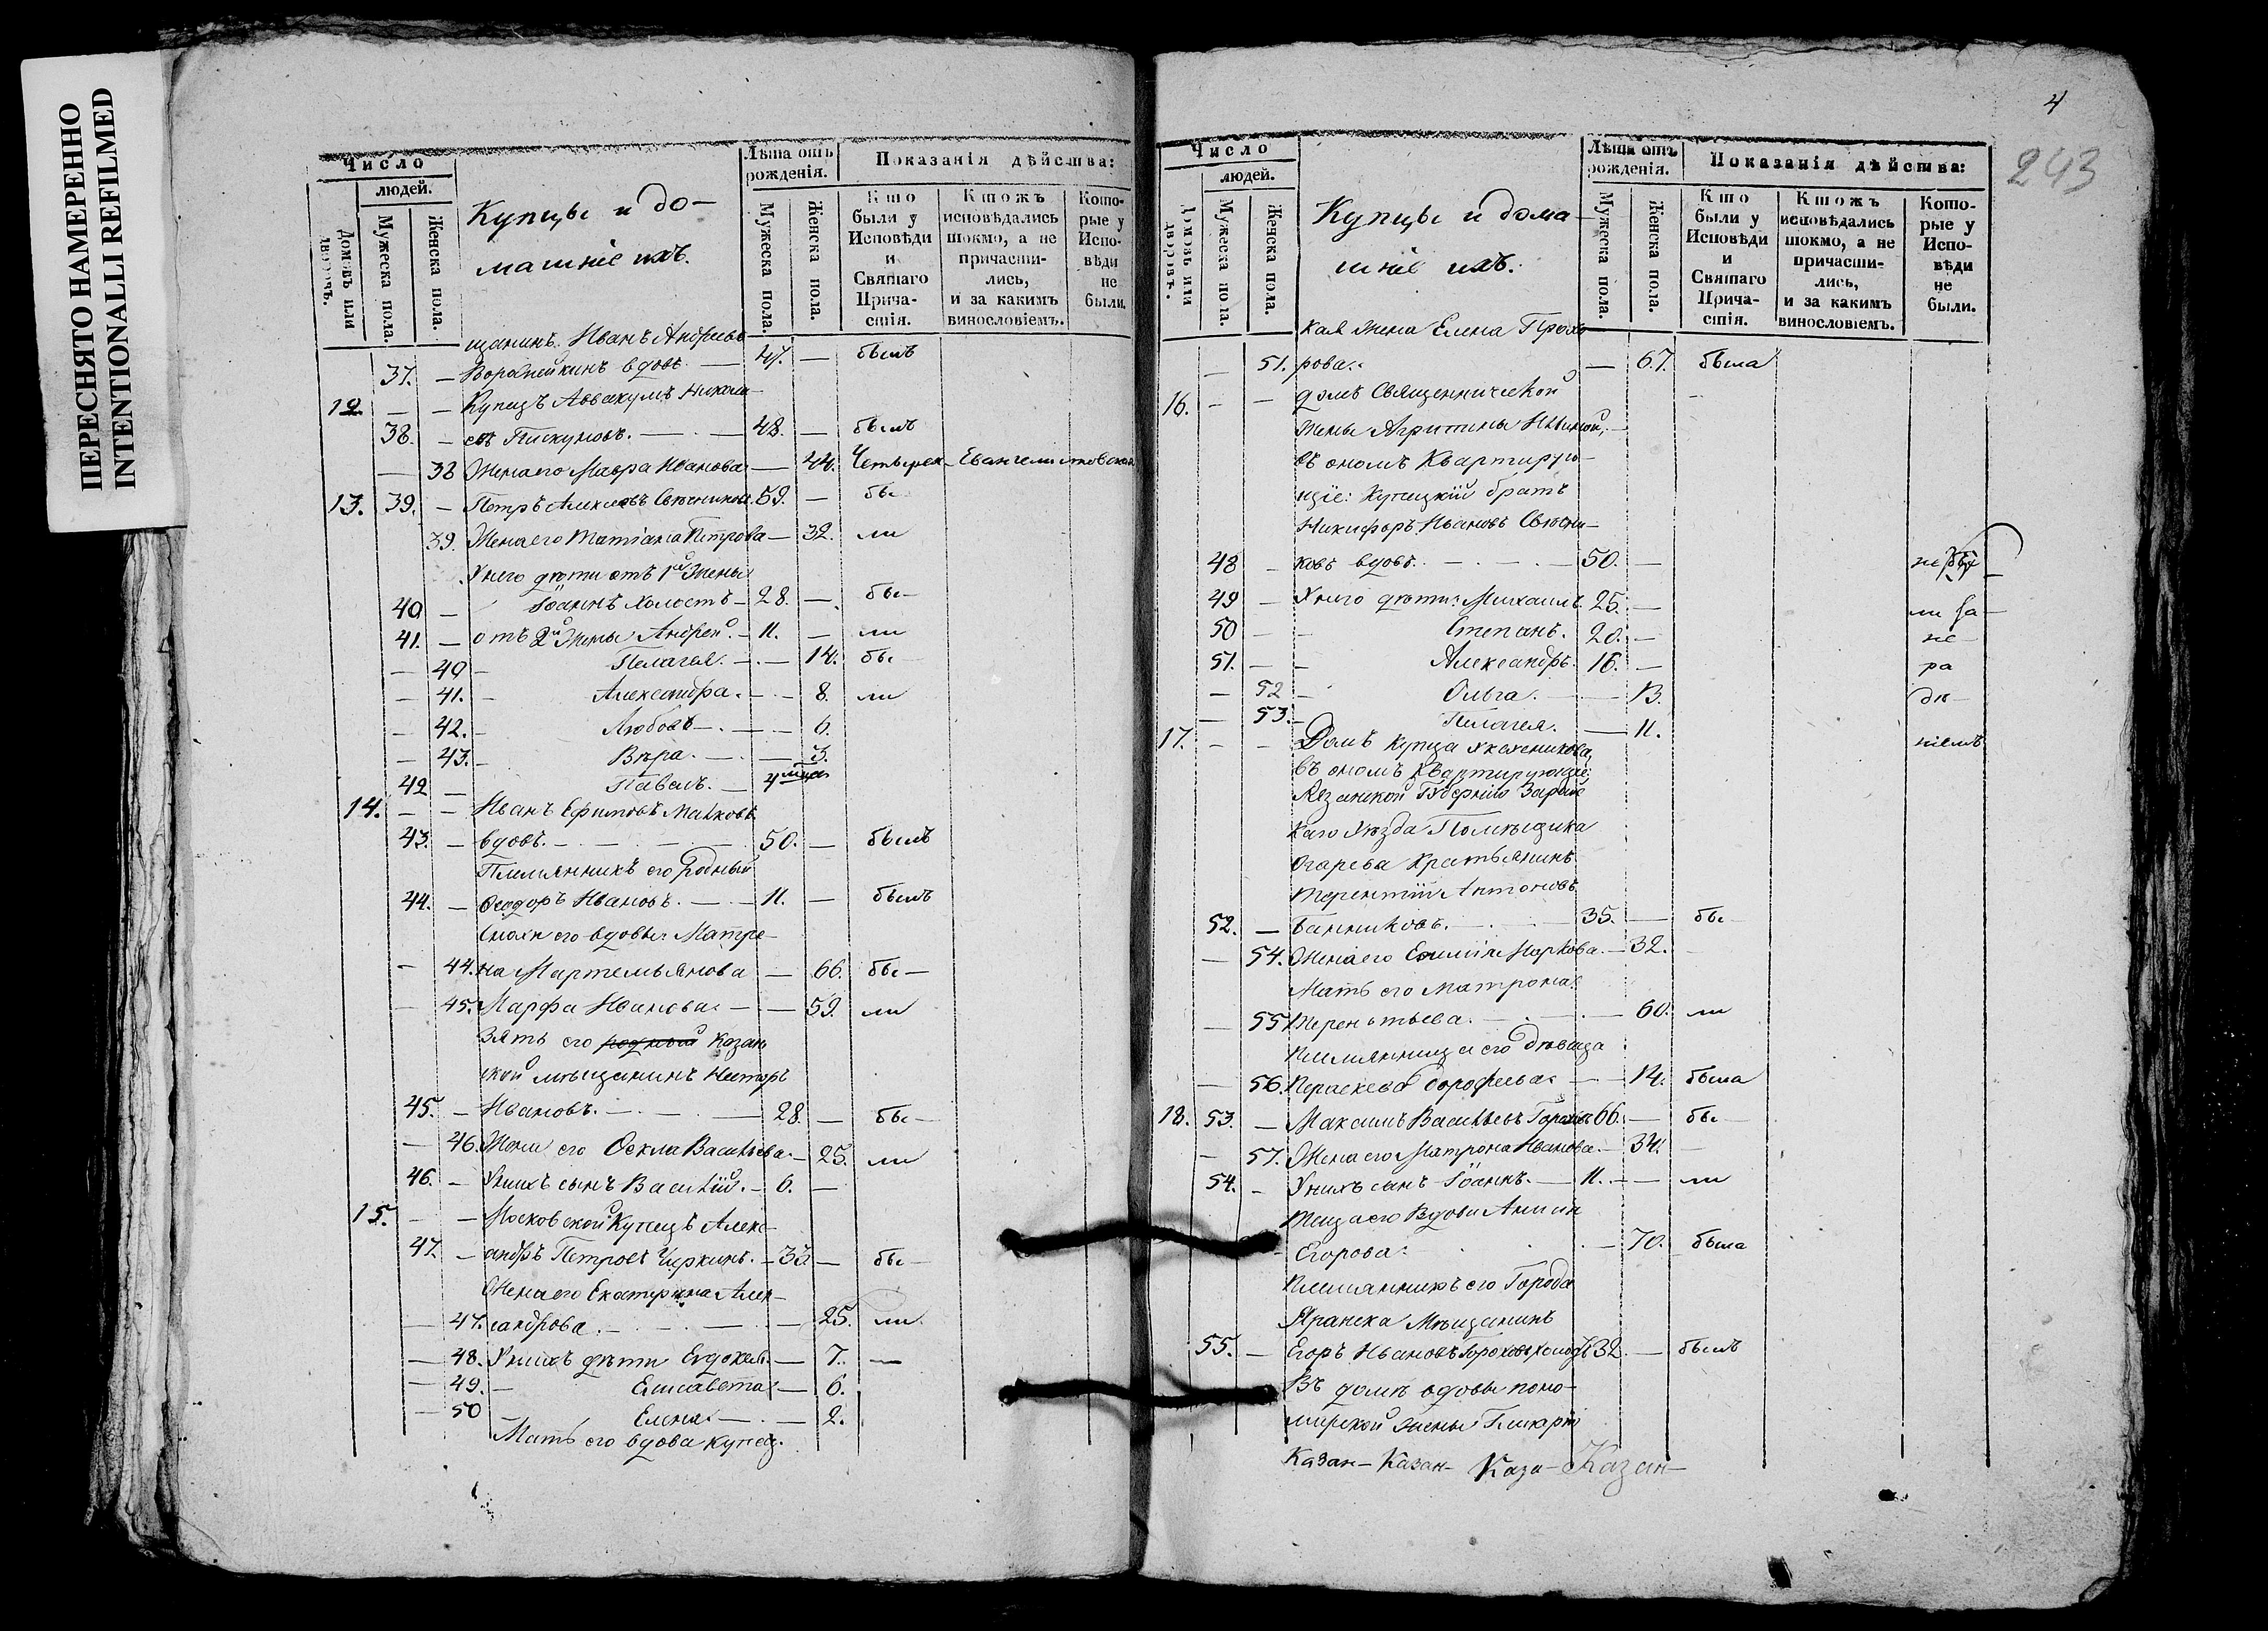 ПЕРЕСНЯТО НАМЕРЕННО
INTENTIONALLI REFILMED
Число
людей.
Домовъ или дворовъ.
Мужеска пола.
Женска пола.
Купцы и до-
машніе ихъ.
Лѣта отъ рожденія.
Мужеска пола.
Женска пола.
Показанія дѣйства:
Кто были у Исповѣди и Святаго Причастія.
Ктожъ исповѣдались токмо, а не причастились, и за какимъ винословіемъ.
Которые у Исповѣди не были.
щанинъ Иванъ Андреевъ
37. — вдовъ. — 47. — былъ
12. — — Купецъ Аввакумъ Никола-
38. — евъ Пискуновъ. — 48. — былъ
— 38 Жена его Мавра Иванова — 44. Четырех- Евангелистовской
13. 39. — Петръ Алексѣевъ Свѣчниковъ. 59. — бы-
39. Жена его Татіана Петрова — 32. ли
У него дѣти отъ 1й Жены
40 — Іоаннъ холостъ — 28. — бы-
41. — отъ 2й Жены Андрей. — 11. — ли
— 40 — Пелагея. — 14. бы-
— 41. — Александра. — 8. ли
— 42. — Любовь — 6.
— 43. — Вѣра. — 3.
42 — Павелъ. — 4 мѣся
14. — — Иванъ Ефимовъ
43. — вдовъ. — 50. — былъ
Племянникъ его родный
44. — Ѳеодоръ Ивановъ. — 11. — былъ
его вдовы Матре-
— 44. на Мартемьянова — 66. бы-
— 45. Марфа Иванова — 59. ли
Зять его родный Казан
ской мѣщанинъ Несторъ
45. — Ивановъ. — 28. — бы-
— 46. Жена его Ѳекла Васильева. — 25. ли
46. — У нихъ сынъ Василій. — 6. —
15. — — Московской Купецъ Алек-
47. — андръ Петровъ Чиркинъ. — 33 — бы-
Жена его Екатерина Алек-
— 47. сандрова. — 25. ли.
— 48. У нихъ дѣти Евдокея. — 7. —
— 49. — Елисавета — 6.
— 50 Елена. — 2.
Мать его вдова купец.
4
243
Число
людей.
Домовъ или дворовъ.
Мужеска пола.
Женска пола.
Купцы и дома-
шніе ихъ.
Лѣта отъ рожденія.
Мужеска пола.
Женска пола.
Показанія дѣйства:
Кто были у Исповѣди и Святаго Причастія.
Ктожъ исповѣдались токмо, а не причастились, и за какимъ винословіемъ.
Которые у Исповѣди не были.
кая жена Елена Прохо-
— 51. рова. — 67. была
16. — — домъ Священнической
Жены Агрипины
въ ономъ Квартирую-
щіе: Купецкій братъ
Никифоръ Ивановъ Свѣчни-
48 — ковъ вдовъ. — 50. — не бы
49 — У него дѣти: Михаилъ 25. — ли за
50 — — Степанъ. 20. — не
51. — — Александръ. 16. — ра
— 52 — Ольга. — 13. дѣ
— 53. — Пелагея. — 11. ніемъ
17. — — Домъ Купца
въ ономъ Квартирующіе:
Рязанской Губерніи Зарай
каго Уѣзда Помѣщика
Огарева Крестьянинъ
Терентій Антоновъ
52. — Банниковъ. — 35. — бы-
— 54. Жена его Маркова. — 32.
Мать его Матрона
— 55 Терентьева. — 60. ли
Племянница его дѣвица
— 56. Параскева Дорофеева — 14. была
18. 53. — Максимъ Васильевъ Гороховъ 66. — бы-
— 57. Жена его Матрона Иванова. — 34. —
54. — У нихъ сынъ Іоаннъ. — 11. — ли
Теща его Вдова
— Егорова. — 70. была
Племянникъ его Города
Яранска Мѣщанинъ
55. — Егоръ Ивановъ Гороховъ холостъ 32. — былъ
Въ домѣ вдовы поно-
марской жены
Казан- Казан- Каза- Казан-